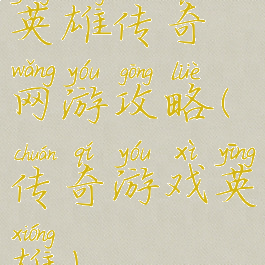 英雄传奇
wǎng yóu gōng lüè
网游攻略(
chuán qí yóu xì yīng
传奇游戏英
xióng
雄)